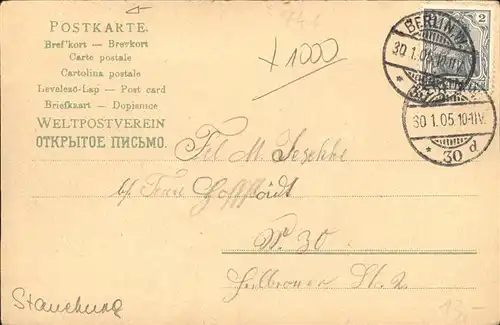 POSTKARTE.
Briefkort — Brevkort
Carte postale
Cartolina postale
Levelező-Lap — Post card
Briefkaart — Dopisnice
WELTPOSTVEREIN
ОТКРЫТОЕ ПИСЬМО.
× 1000
2
BERLIN W.
30 1.05.10-11V.
30 1.05 10-11V.
* 30 d
Frl M. Jeschke
b/ Frau Hoffstädt
W. 30
Heilbronner St. 2
13,-